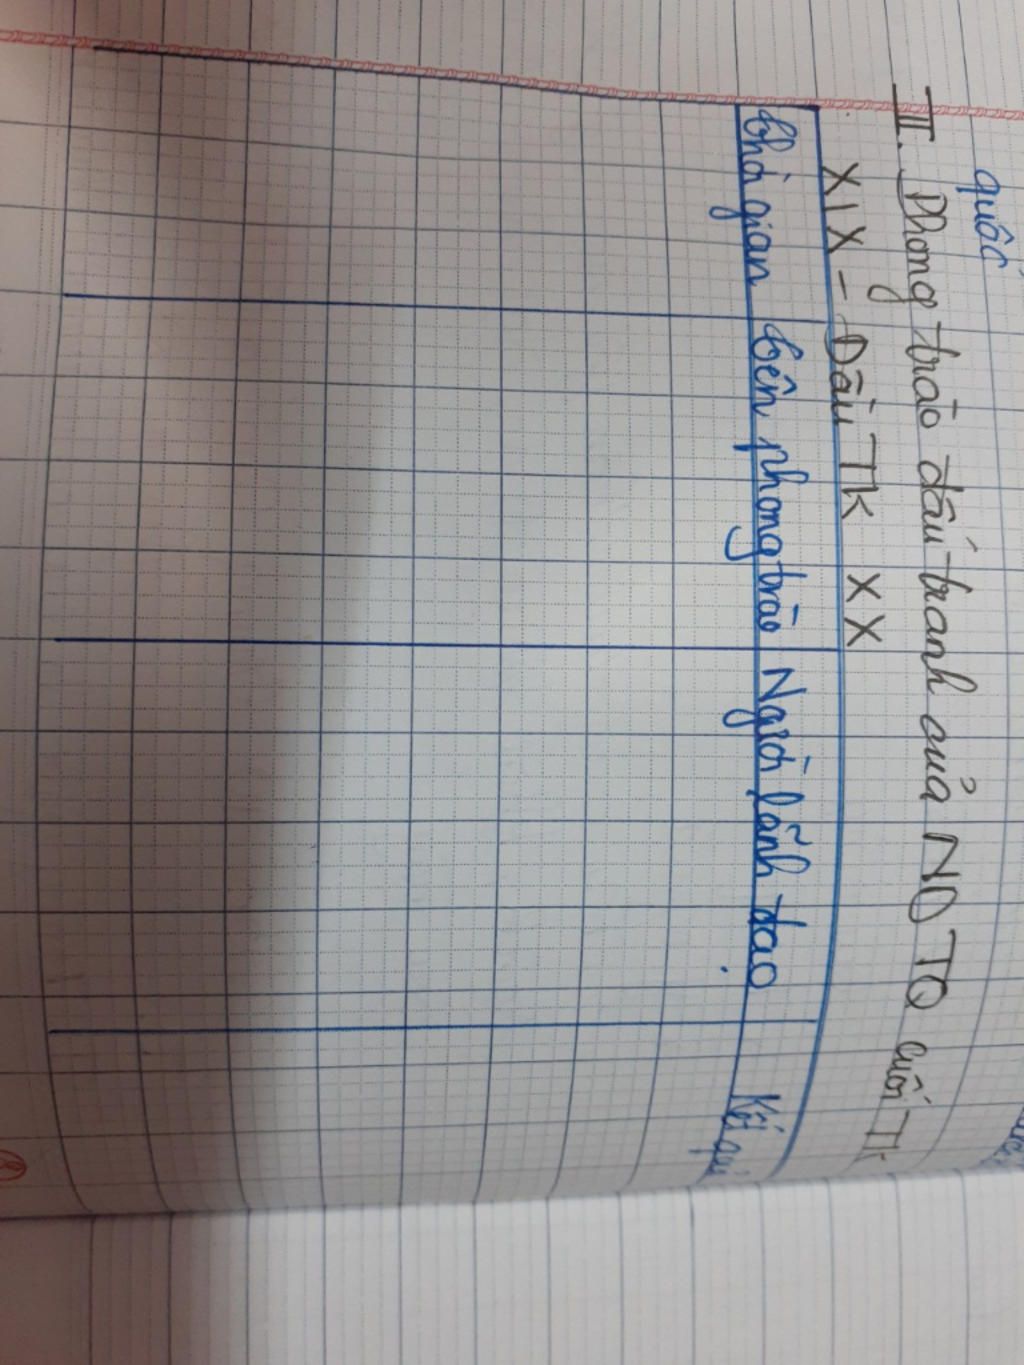 quốc
III. Phong trào đấu tranh của ND TQ cuối TK
XIX - Đầu TK XX
thời gian tên phong trào Người lãnh đạo Kết quả